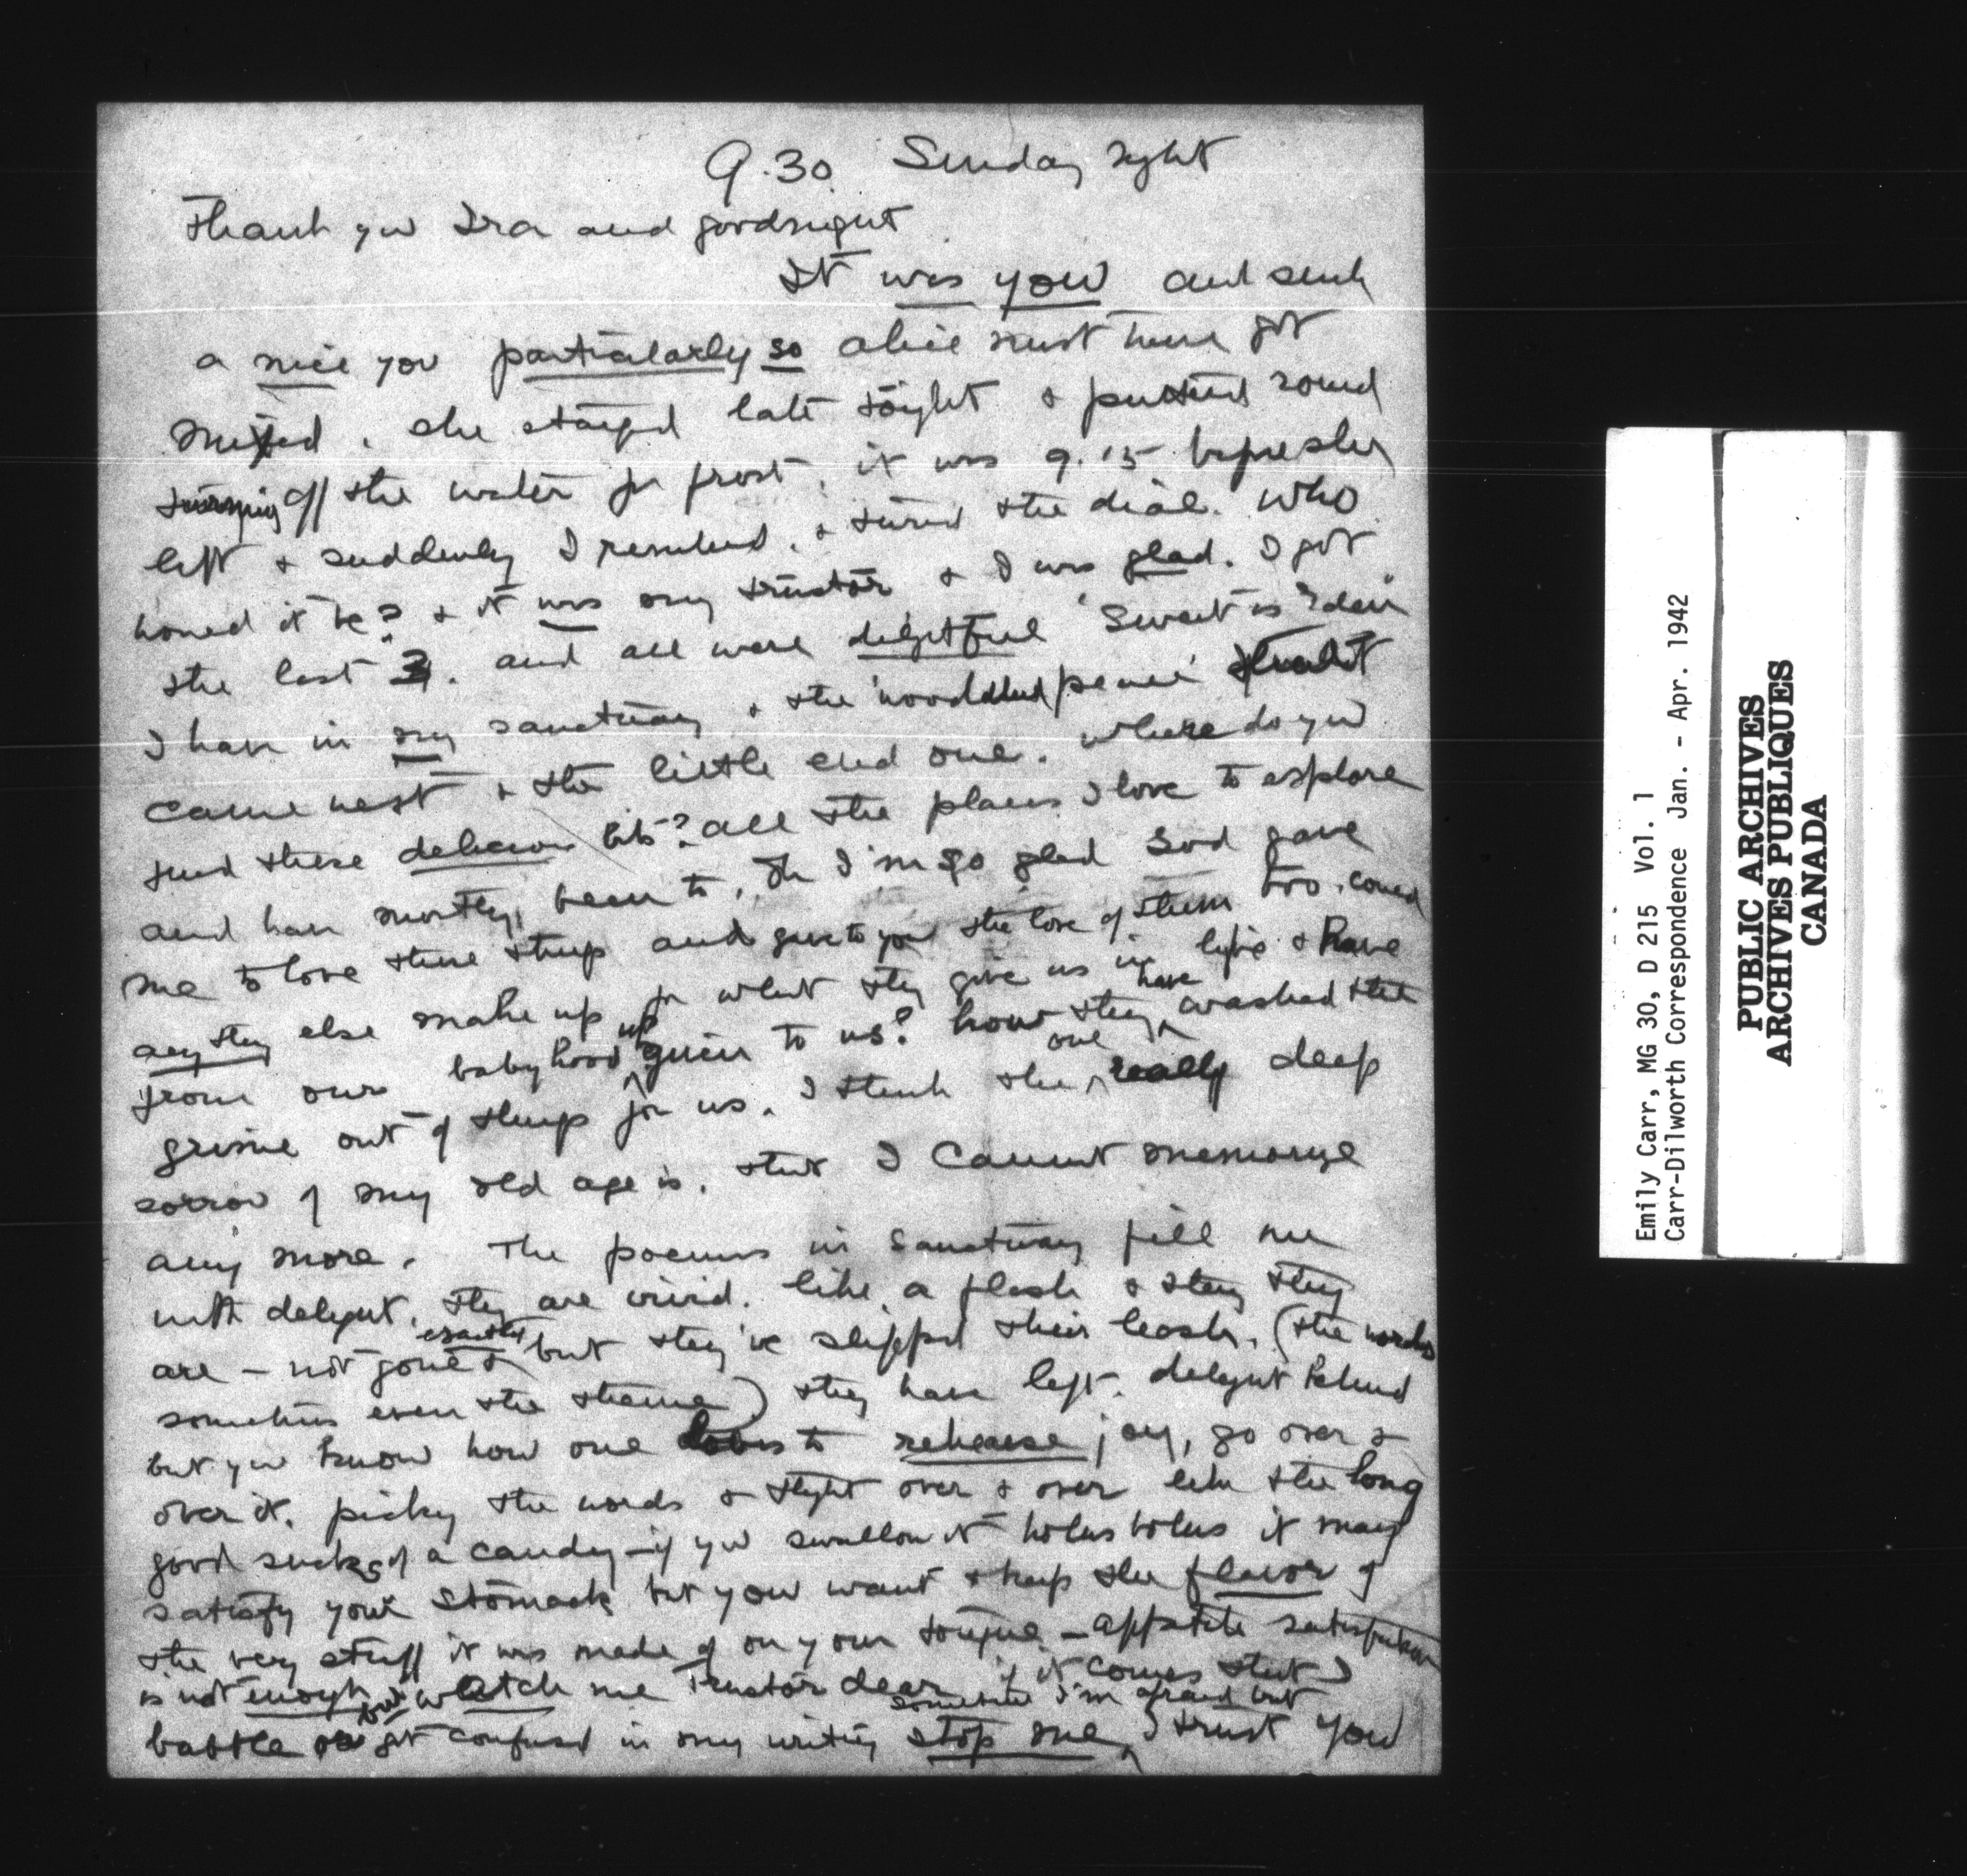 9.30 Sunday night
Thank you Ira and goodnight
It was you and such
a nice you particularly so Alice must have got
mixed. she stayed late tonight & puttered round
turning off the water for frost, it was 9.15 before she
left & suddenly I remembered, & turned the dial. Who
would it be? & it was my trustor & I was glad. I got
the last 3. and all were delightful 'Sweet is
I have in my sanctuary & the 'wood
came next & the little end one. where do you
find these delicious bits? all the places I love to explore
and have mostly been to. Oh I'm so glad God gave
me to love these things and gave to you the love of them too. could
anything else make up for what they give us in life & have
from our babyhood up given to us? how they have washed the
grime out of things for us. I think the one really deep
sorrow of my old age is, that I cannot memorize
any more. The poems in Sanctuary fill me
with delight. they are vivid. like a flash & then they
are - not gone exactly but they've slipped their leash. (the words
sometimes even the theme) they have left delight behind
but you know how one loves to rehearse joy, go over &
over it. picking the words & thought over & over like the long
good sucks of a candy - if you swallow it holus bolus it may
satisfy your stomach but you want to keep the flavor of
the very stuff it was made of on your tongue - appetite satisfaction
is not enough but watch me Trustor dear if it comes that I
battle or get confused in my writing stop me, sometimes I'm afraid but I trust you
Emily Carr, MG 30, D 215 Vol. 1
Carr-Dilworth Correspondence Jan. - Apr. 1942
PUBLIC ARCHIVES
ARCHIVES PUBLIQUES
CANADA